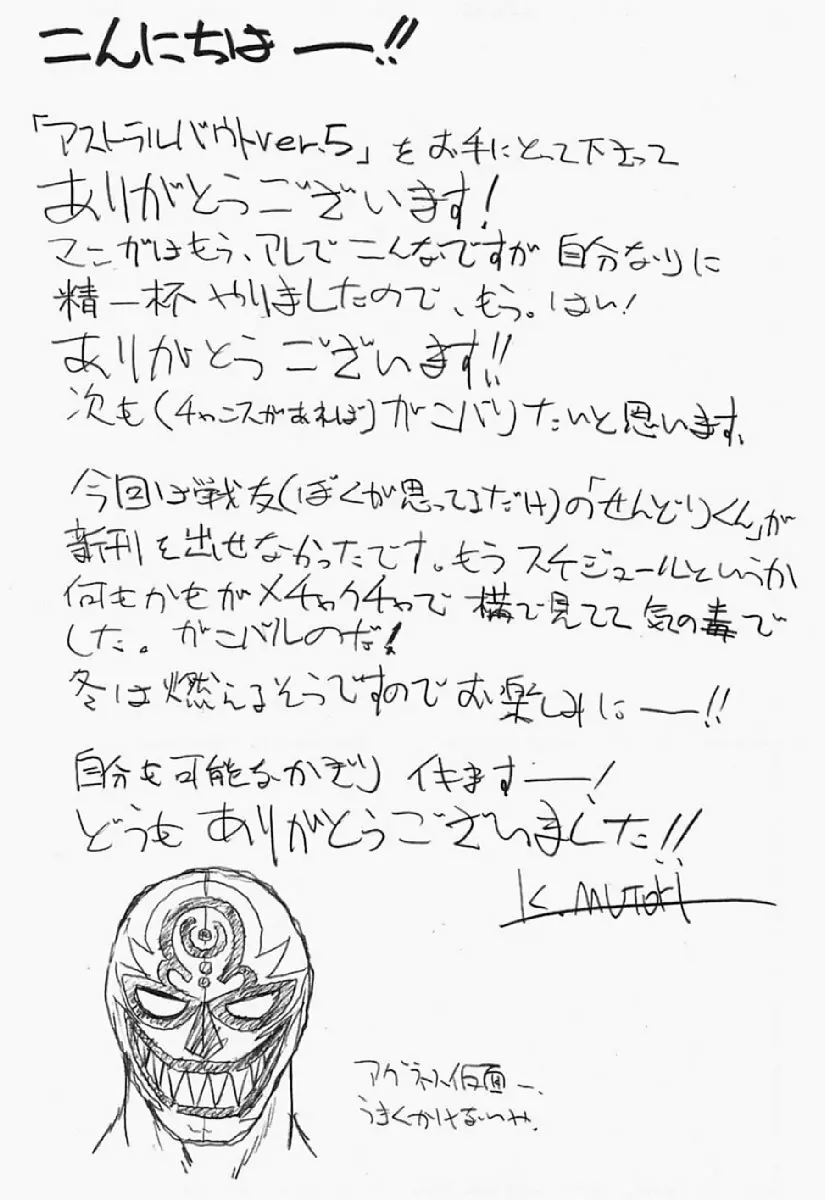 こんにちはー!!
「アストラルバウトver.5」をお手にとって下さって
ありがとうございます!
マンガはもう、アレでこんなですが 自分なりに
精一杯 やりましたので、もう。はい!
ありがとうございます!!
次も(チャンスがあれば)ガンバりたいと思います。
今回は戦友(ぼくが思ってるだけ)の「せんどりくん」が
新刊を出せなかったです。もうスケジュールというか
何もかもがメチャクチャで 横で見てて気の毒で
した。ガンバルのだ!
冬は燃えるそうですのでお楽しみにー!!
自分も可能なかぎり イキますー!
どうもありがとうございました!!
K.MUTOKI
アグネス仮面ー。
うまくかけないや。